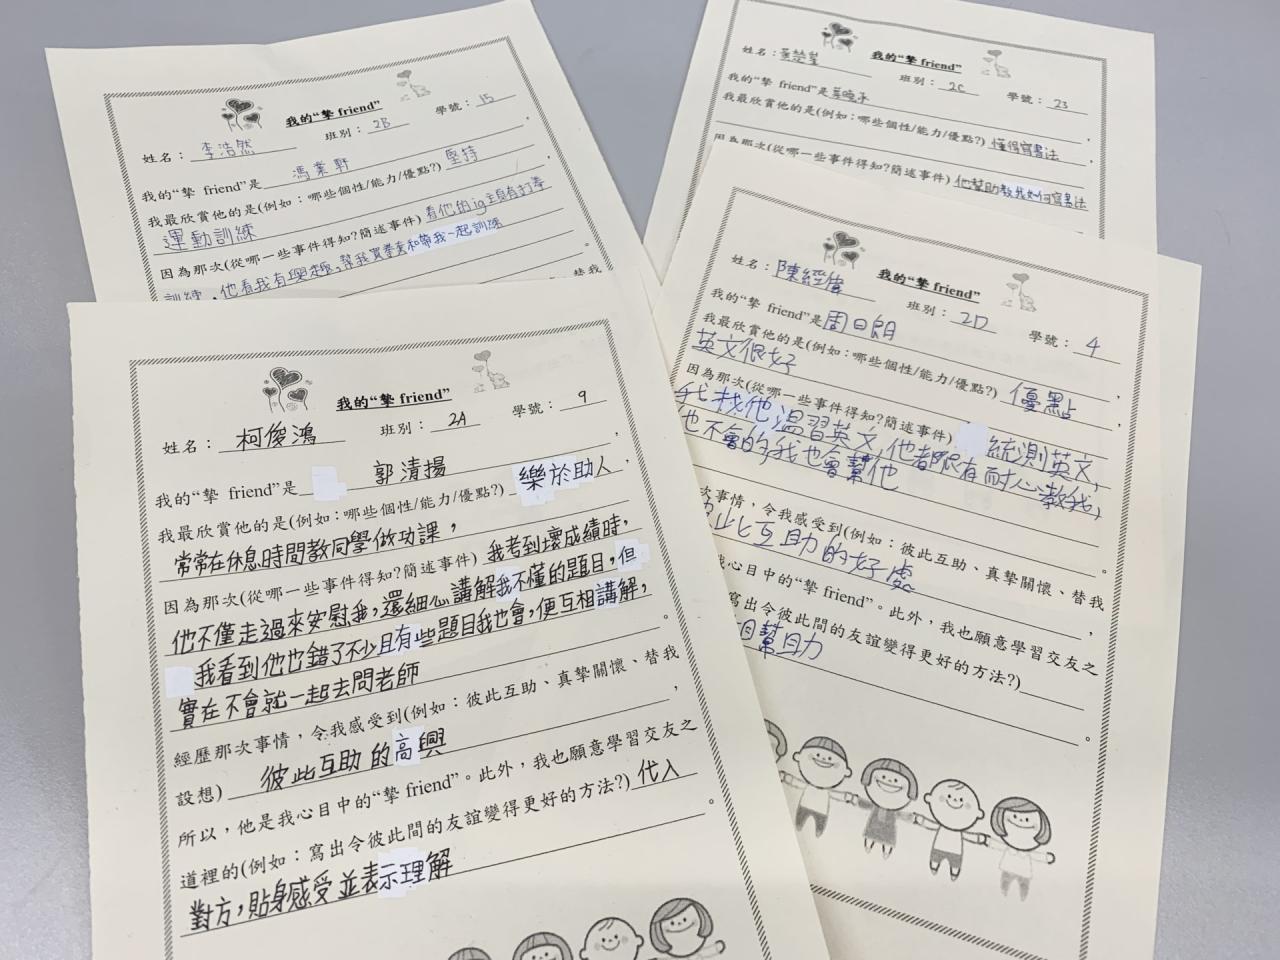 我的“摯 friend”
姓名：李浩然 班別：2B 學號：15
我的“摯 friend”是 馮業軒 ，
我最欣賞他的是(例如：哪些個性/能力/優點?) 堅持
運動訓練 ，
因為那次(從哪一些事件得知?簡述事件) 看他的ig主頁有打拳
訓練，他看我有興趣，幫我買拳套和帶我一起訓練
替我
我的“摯 friend”
姓名： 班別：2C 學號：23
我的“摯 friend”是 ，
我最欣賞他的是(例如：哪些個性/能力/優點?) 懂得寫書法
，
因為那次(從哪一些事件得知?簡述事件) 他幫助教我如何寫書法
我的“摯 friend”
姓名：柯俊鴻 班別：2A 學號：9
我的“摯 friend”是 郭清揚 ，
我最欣賞他的是(例如：哪些個性/能力/優點?) 樂於助人，
常常在休息時間教同學做功課，
因為那次(從哪一些事件得知?簡述事件) 我考到壞成績時，
他不僅走過來安慰我，還細心講解我不懂的題目，但
我看到他也錯了不少且有些題目我也會，便互相講解，
實在不會就一起去問老師 。
經歷那次事情，令我感受到(例如：彼此互助、真摯關懷、替我
設想) 彼此互助的高興 ，
所以，他是我心目中的“摯 friend”。此外，我也願意學習交友之
道裡的(例如：寫出令彼此間的友誼變得更好的方法?) 代入
對方，貼身感受並表示理解 。
我的“摯 friend”
姓名：陳經偉 班別：2D 學號：4
我的“摯 friend”是周日朗 ，
我最欣賞他的是(例如：哪些個性/能力/優點?) 優點
英文很好 ，
因為那次(從哪一些事件得知?簡述事件) 統測英文，
我找他溫習英文，他都很有耐心教我，
他不會的，我也會幫他
。
次事情，令我感受到(例如：彼此互助、真摯關懷、替我
此互助的好處 ，
我心目中的“摯 friend”。此外，我也願意學習交友之
寫出令彼此間的友誼變得更好的方法?)
相幫助 。